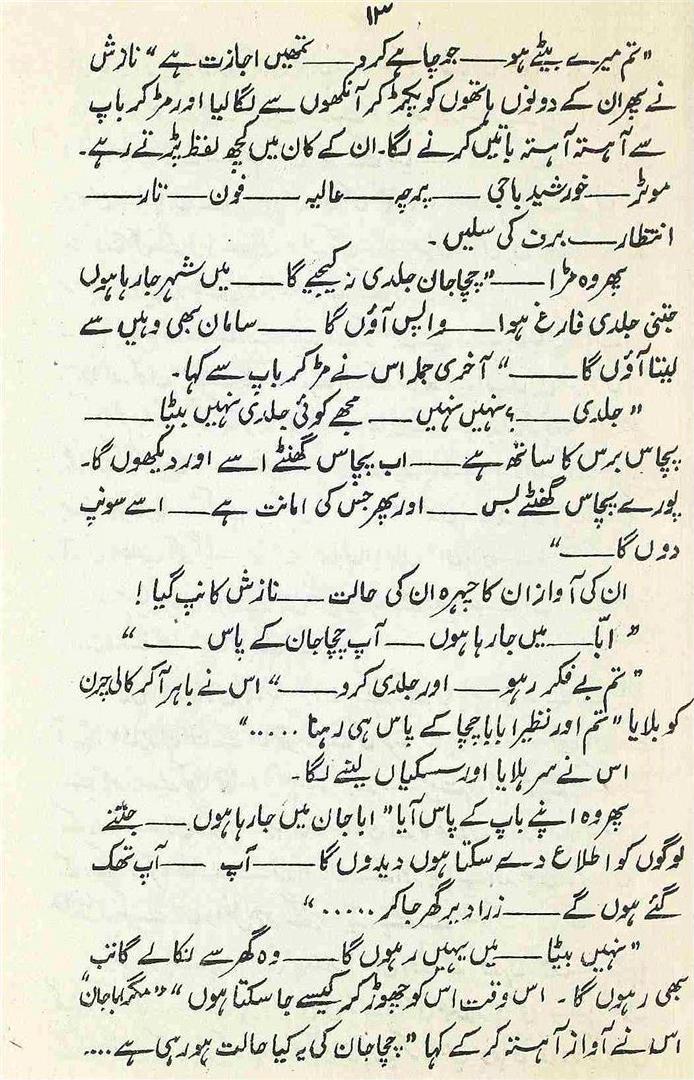 ۱۳
”تم میرے بیٹے ہو —— جو چاہے کرو —— تمھیں اجازت ہے“ نازش
نے پھر ان کے دونوں ہاتھوں کو پکڑ کر آنکھوں سے لگا لیا اور مڑ کر باپ
سے آہستہ آہستہ باتیں کرنے لگا۔ ان کے کان میں کچھ لفظ پڑتے رہے۔
موٹر —— خورشید باجی —— پرچہ —— عالیہ —— فون —— تار ——
انتظار —— برف کی سلیں۔
پھر وہ مڑا —— ”چچا جان جلدی نہ کیجیے گا —— میں شہر جا رہا ہوں
جتنی جلدی فارغ ہوا —— واپس آؤں گا —— سامان بھی وہیں سے
لیتا آؤں گا ——“ آخری جملہ اس نے مڑ کر باپ سے کہا۔
”جلدی —— ؟ نہیں نہیں —— مجھے کوئی جلدی نہیں بیٹا ——
پچاس برس کا ساتھ ہے —— اب پچاس گھنٹے اسے اور دیکھوں گا۔
پورے پچاس گھنٹے بس —— اور پھر جس کی امانت ہے —— اسے سونپ
دوں گا ——“
ان کی آواز ان کا چہرہ ان کی حالت —— نازش کانپ گیا !
”ابّا —— میں جا رہا ہوں —— آپ چچا جان کے پاس ——“
”تم بے فکر رہو —— اور جلدی کرو ——“ اس نے باہر آ کر کالی چرن
کو بلایا ”تم اور نظیرا بابا چچا کے پاس ہی رہنا .....“
اس نے سر ہلایا اور سسکیاں لینے لگا۔
پھر وہ اپنے باپ کے پاس آیا ”ابا جان میں جا رہا ہوں —— جتنے
لوگوں کو اطلاع دے سکتا ہوں دیدوں گا —— آپ —— آپ تھک
گئے ہوں گے —— ذرا دیر گھر جا کر .....“
”نہیں بیٹا —— میں یہیں رہوں گا —— وہ گھر سے نکالے گا تب
بھی رہوں گا۔ اس وقت اس کو چھوڑ کر کیسے جا سکتا ہوں“ ”مگر ابا جان“
اس نے آواز آہستہ کر کے کہا ”چچا جان کی یہ کیا حالت ہو رہی ہے ....